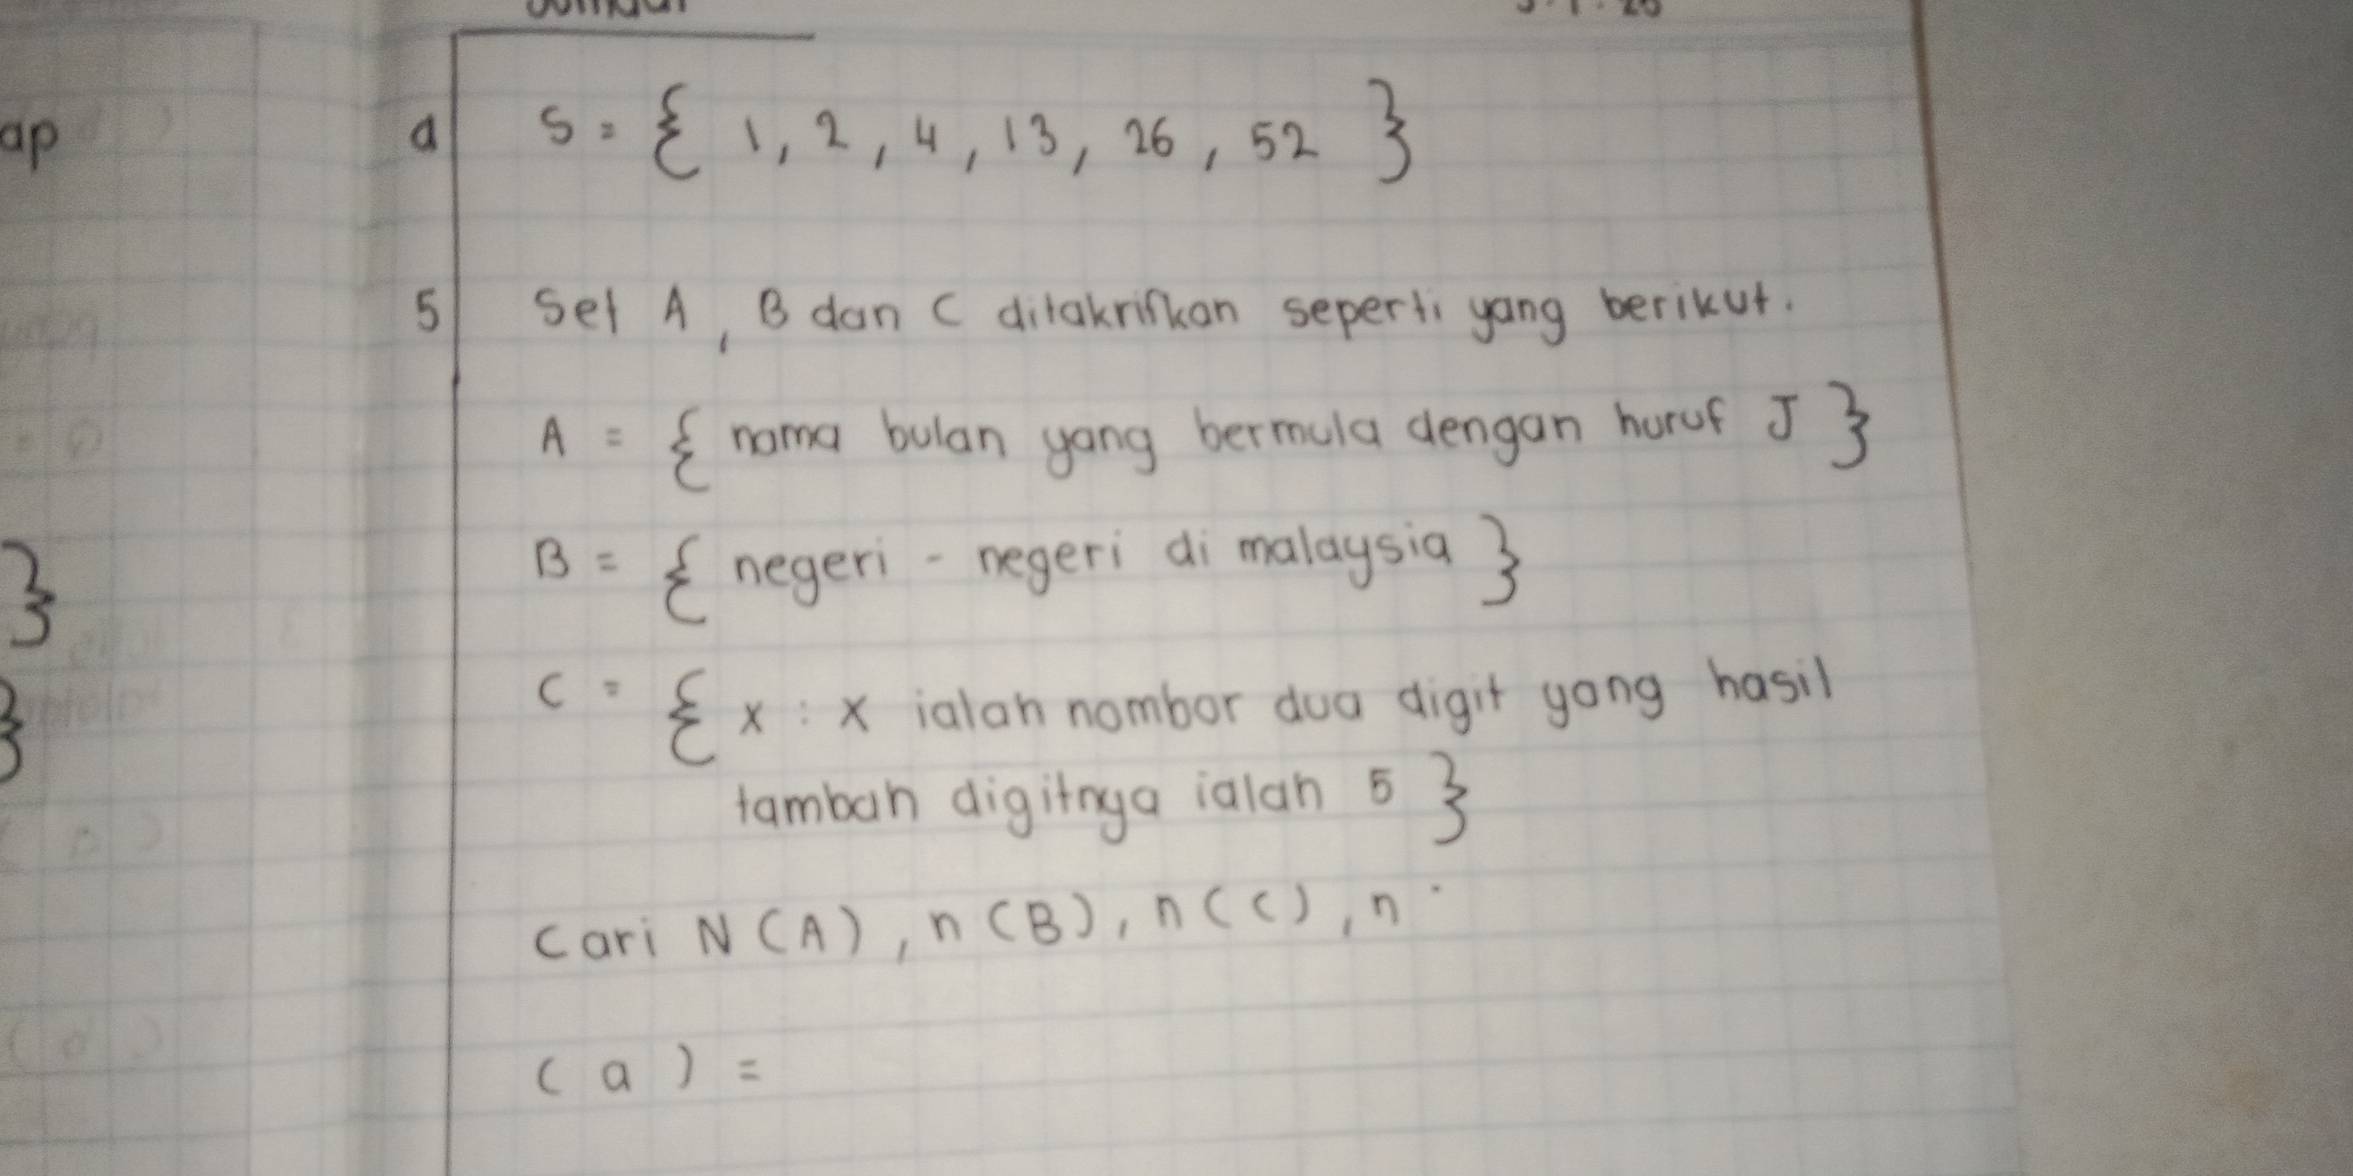 ap
d S = { 1, 2, 4, 13, 26, 52 }
5 Set A, B dan C ditakrifkan seperti yang berikut.
A = { nama bulan yang bermula dengan huruf J }
B = { negeri - negeri di malaysia }
}
C = { x : x ialah nombor dua digit yang hasil
}
tambah digitnya ialah 5 }
Cari N(A), n(B), n(C), n
(a) =